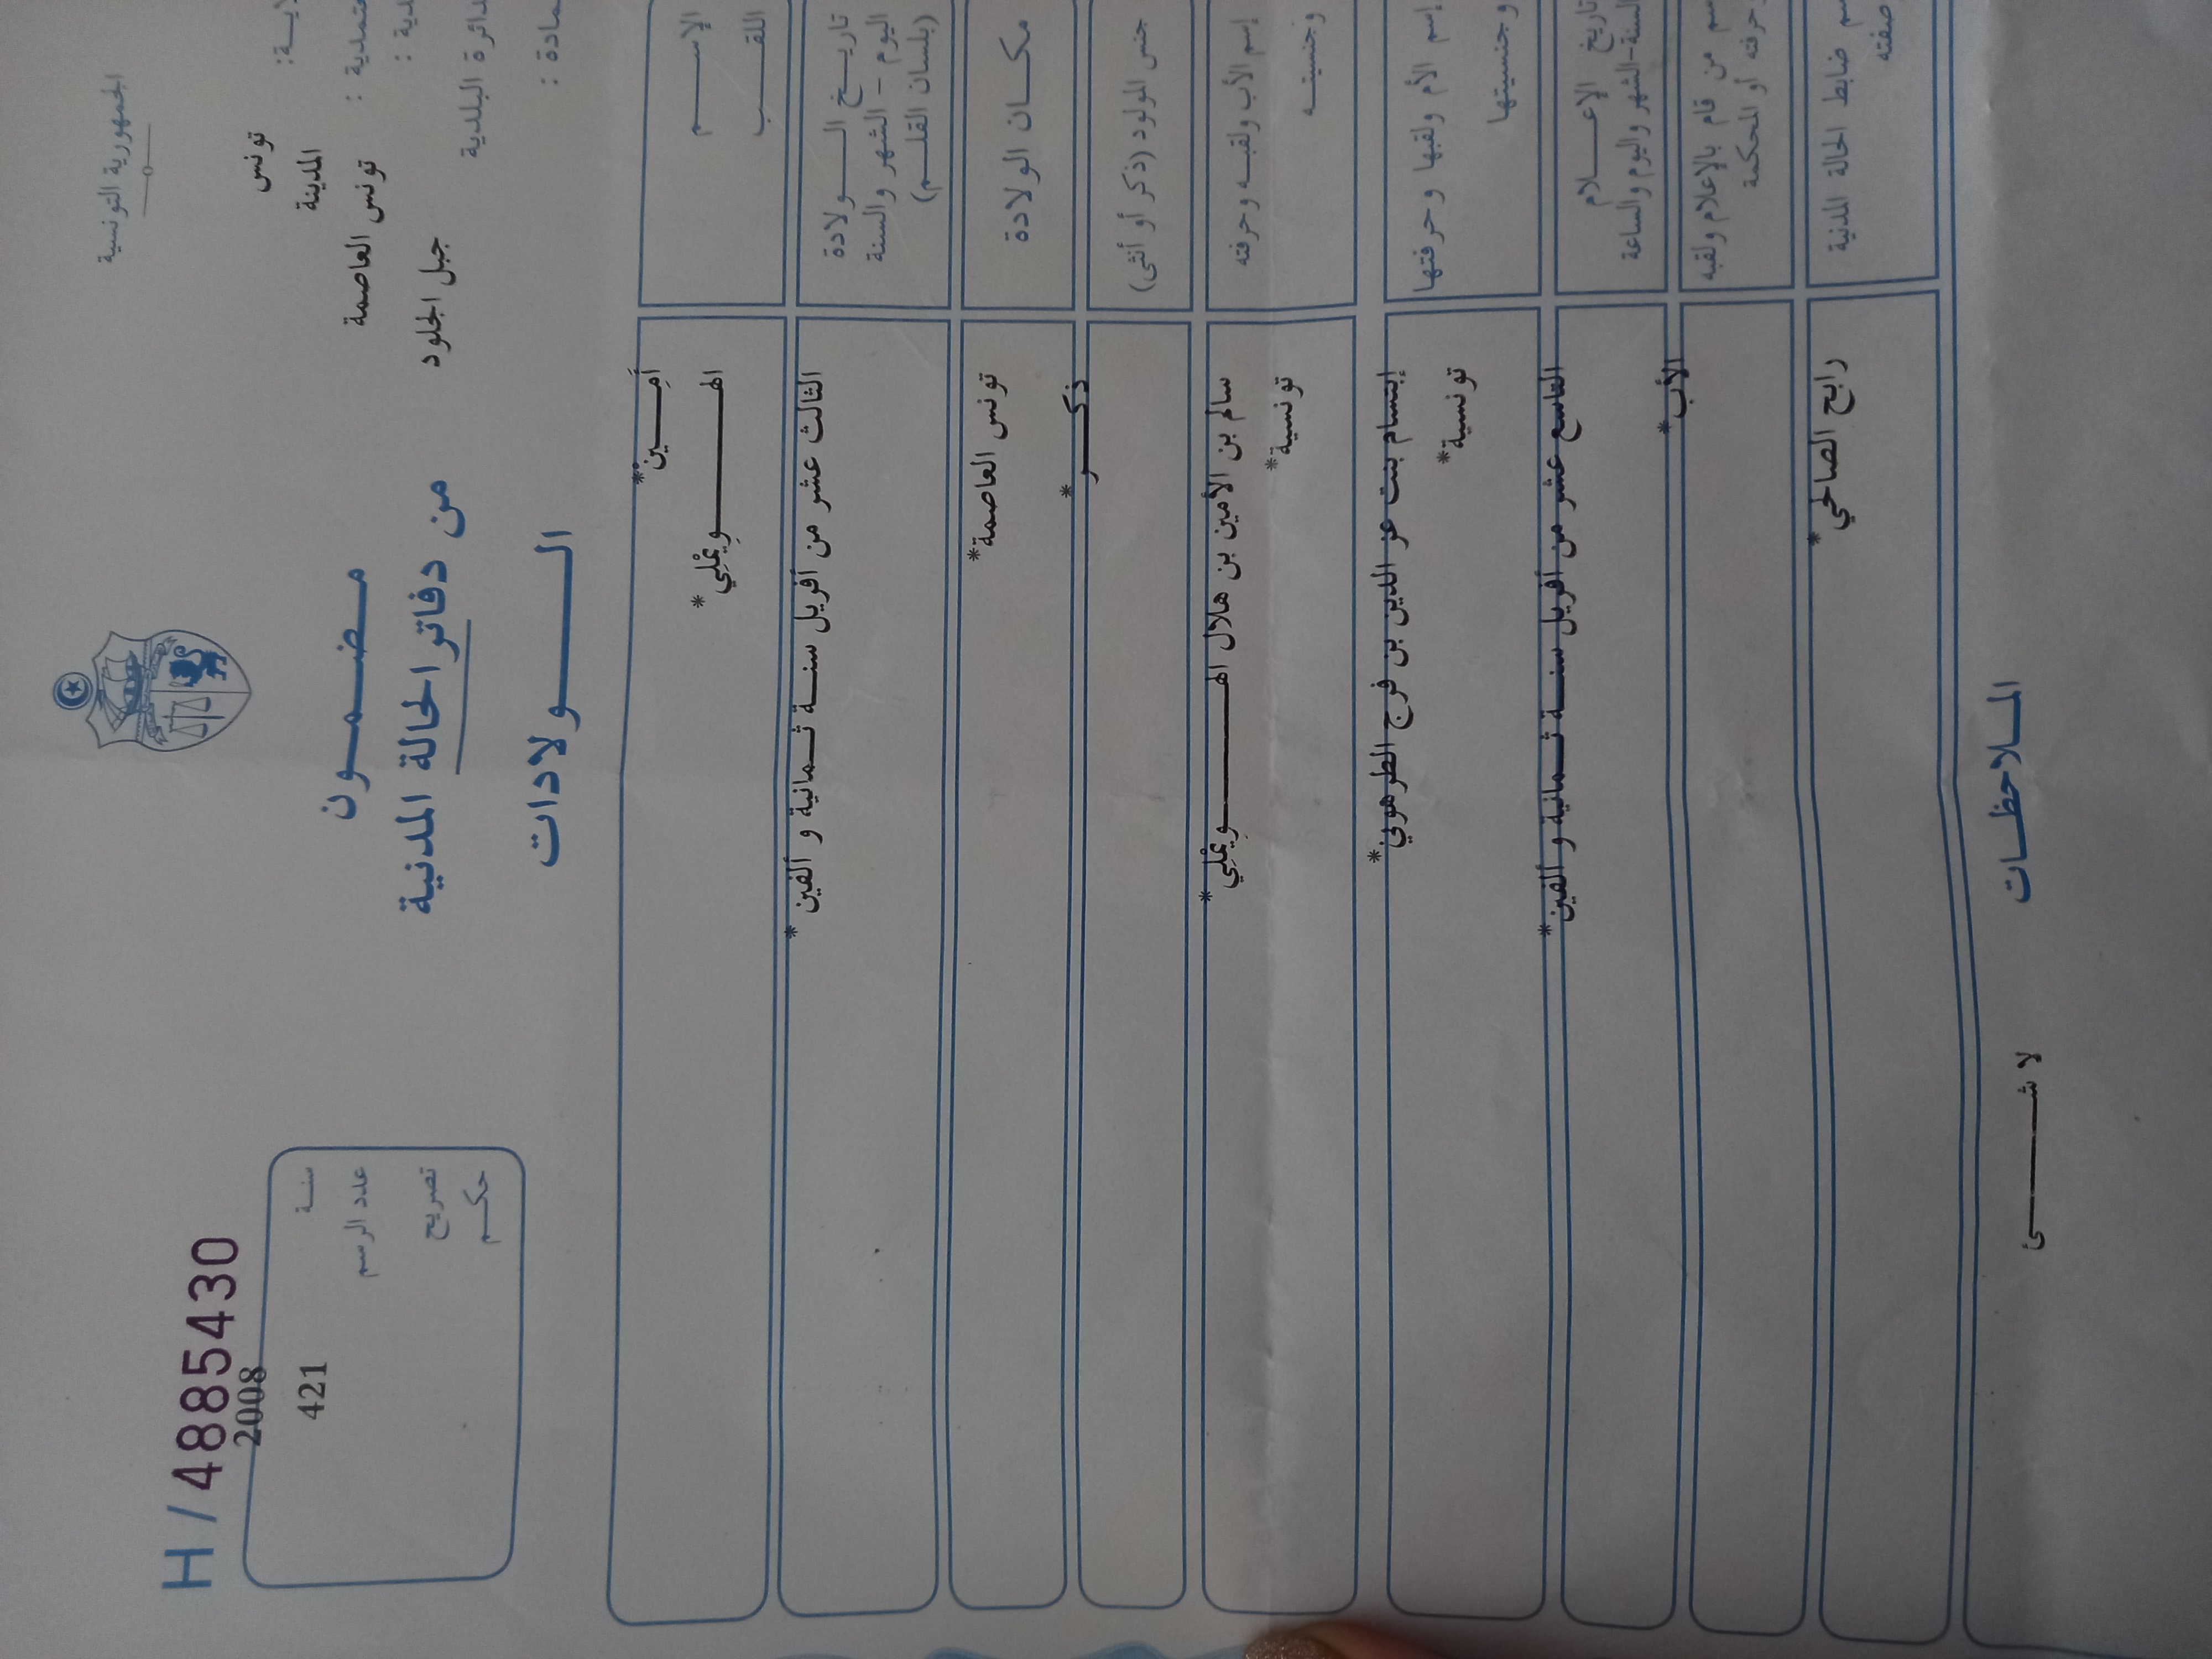 الجمهورية التونسية
H / 4885430
تونس
المدينة
تونس العاصمة
جبل الجلود
مضمون
من دفاتر الحالة المدنية
الولادات
سنة 2008
عدد الرسم 421
تصريح
حكم
الإسم أَمِين*
اللقب الهوِيمْلِي*
تاريخ الولادة
اليوم - الشهر والسنة
(بلسان القلم)
الثالث عشر من أفريل سنة ثمانية و ألفين*
مكان الولادة تونس العاصمة*
جنس المولود (ذكر أو أنثى) ذكر*
إسم الأب ولقبه وحرفته
وجنسيته
سالم بن الأمين بن هلال الهوِيمْلِي*
تونسية*
إسم الأم ولقبها وحرفتها
وجنسيتها
إبتسام بنت عز الدين بن فرج الطرهوني*
تونسية*
تاريخ الإعلام
السنة-الشهر واليوم والساعة
التاسع عشر من أفريل سنة ثمانية و ألفين*
من قام بالإعلام ولقبه
وحرفته أو المحكمة
الأب*
ضابط الحالة المدنية
وصفته
رابح الصالحي*
الملاحظات
لا شئ